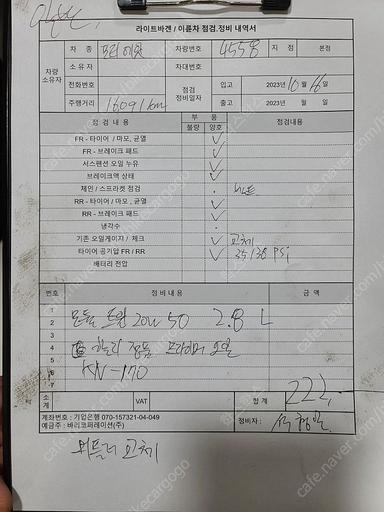 라이트바겐 / 이륜차 점검.정비 내역서
차량 소유자
차 종 프리이웟 차량번호 4558 지 점 본점
소 유 자 차대번호
전화번호 점검 정비일자 입고 2023년 10 월 16 일
주행거리 16091 km 출고 2023년 월 일
점 검 내 용 부 품 점검내용
불량 양호
FR - 타이어 / 마모, 균열 ✓
FR - 브레이크 패드 ✓
서스펜션 오일 누유 ✓
브레이크액 상태 ✓
체인 / 스프라켓 점검 .
RR - 타이어 / 마모 , 균열 ✓
RR - 브레이크 패드 ✓
냉각수 .
기존 오일게이지 / 체크 ✓ 교체
타이어 공기압 FR / RR ✓ 35/38 PSI
배터리 전압
번호 정 비 내 용 금 액
1
2 모튤 트윈 20W 50 2.8 L
3
4 할리 정품 프라이머 오일
5
6 KN-170
7
소 계 VAT 합 계 222,-
계좌번호 : 기업은행 070-157321-04-049
예금주 : 바리코퍼레이션(주) 정비자 :
머플러 교체
cafe.naver.com/bikecargogo